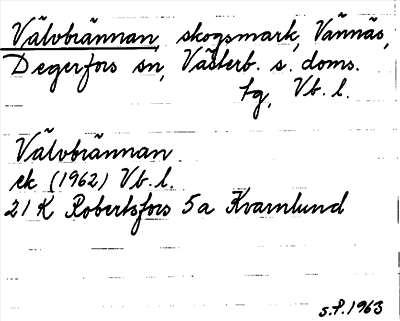 Välvbrännan, skogsmark, Vännäs,
Degerfors sn, Västerb. s. doms.
tg, Vb. l.
Välvbrännan
ek (1962) Vb. l.
21 K Robertsfors 5a Kvarnlund
s.P. 1963